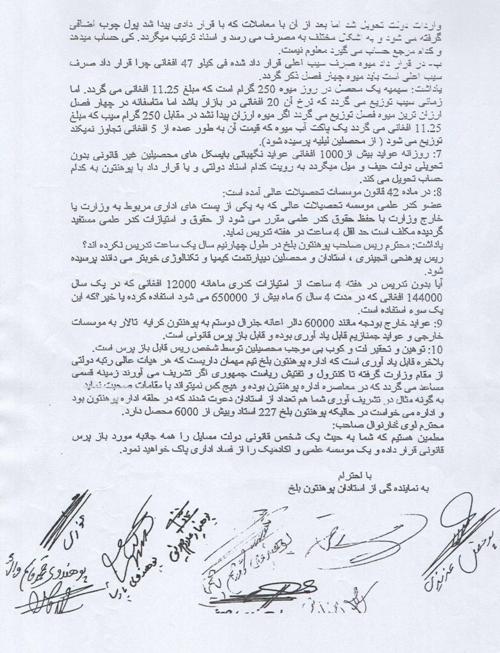 واردات دولت تحویل شد اما بعد از آن با معاملات که با قرار دادی پیدا شد پول چوب اضافی
گرفته می شود و به اشکال مختلف به مصرف می رسد و اسناد ترتیب میگردد. کی حساب میدهد
و کدام مرجع حساب می گیرد معلوم نیست.
ب- در قرار داد میوه صرف سیب اعلی قرار داد شده فی کیلو 47 افغانی چرا قرار داد صرف
سیب اعلی است باید میوه چهار فصل ذکر گردد.
یاداشت: سهمیه یک محصل در روز میوه 250 گرام است که مبلغ 11.25 افغانی می گردد. اما
زمانی سیب توزیع می گردد که نرخ آن 20 افغانی در بازار باشد اما متاسفانه در چهار فصل
ارزان ترین میوه فصل توزیع می گردد اگر میوه ارزان پیدا نشد در مقابل 250 گرام سیب که مبلغ
11.25 افغانی می گردد یک پاکت آب میوه که قیمت آن به طور عمده از 5 افغانی تجاوز نمیکند
توزیع می شود ( از محصلین لیلیه پرسیده شود).
7: روزانه عواید بیش از1000 افغانی عواید نگهبانی بایسکل های محصلین غیر قانونی بدون
تحویلی دولت حیف و میل میگردد به رویت کدام اسناد دولتی و یا قرار داد با پوهنتون به کدام
حساب تحویل می کند.
8: در ماده 42 قانون موسسات تحصیلات عالی آمده است:
عضو کدر علمی موسسه تحصیلات عالی که به یکی از پست های اداری مربوط به وزارت یا
خارج وزارت با حفظ حقوق کدر علمی مقرر می شود از حقوق و امتیازات کدر علمی مستفید
گردیده مکلف است حد اقل 4 ساعت در هفته تدریس نماید.
یاداشت: محترم ریس صاحب پوهنتون بلخ در طول چهارنیم سال یک ساعت تدریس نکرده اند؟
ریس پوهنحی انجینری ، استادان و محصلین دیپارتمنت کیمیا و تکنالوژی خوبتر می دانند پرسیده
شود.
آیا بدون تدریس در هفته 4 ساعت از امتیازات کدری ماهانه 12000 افغانی که در یک سال
144000 افغانی که در مدت 4 سال 6 ماه بیش از 650000 می شود استفاده کرده یا خیر؟که این
یک سوه استفاده است.
9: عواید خارج بودجه مانند 60000 دالر اعانه جنرال دوستم به پوهنتون کرایه تالار به موسسات
خارجی و عواید جمنازیم قابل یاد آوری بوده و قابل باز پرس قانونی است.
10: توهین و تحقیر لت و کوب بی موجب محصلین توسط شخص ریس قابل باز پرس است.
بلاخره قابل یاد آوری است که اداره پوهنتون بلخ تیم مهمان داریست که هر هیات عالی رتبه دولتی
از مقام وزارت گرفته تا کنترول و تفتیش ریاست جمهوری اگر تشریف می آورند زمینه قسمی
مساعد می گردد که در محاصره اداره پوهنتون بوده و هیچ کس نمیتواند با مقامات صحبت نماید
به گونه مثال در تشریف آوری شما هم تعداد از استادان دعوت شدند که در حلقه اداره پوهنتون بود
و اداره می خواست در حالیکه پوهنتون بلخ 227 استاد وبیش از 6000 محصل دارد.
محترم لوی خارنوال صاحب:
مطمین هستیم که شما به حیث یک شخص قانونی دولت مسایل را همه جانبه مورد باز پرس
قانونی قرار داده و یک موسسه علمی و اکادمیک را از فساد اداری پاک خواهید نمود.
با احترام
به نماینده گی از استادان پوهنتون بلخ